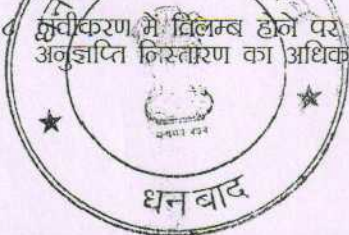 नवीकरण में विलम्ब होने पर
अनुज्ञप्ति निस्तारण का अधिक
धनबाद